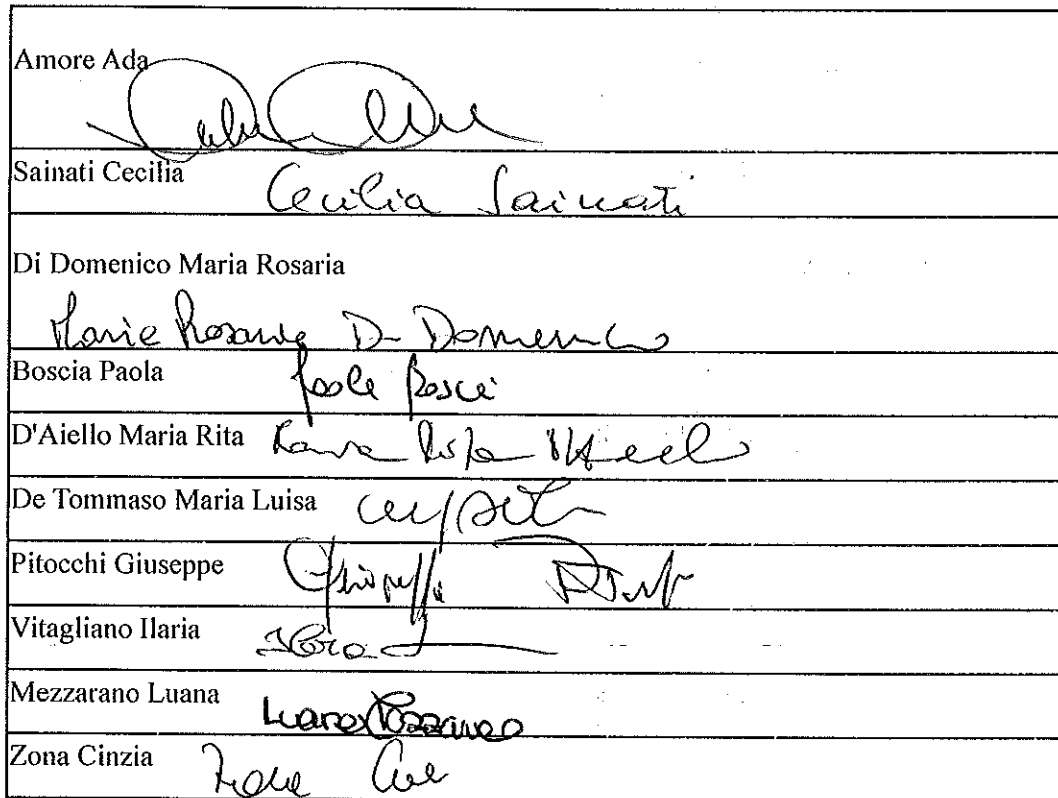 Amore Ada
Sainati Cecilia Cecilia Sainati
Di Domenico Maria Rosaria
Maria Rosaria Di Domenico
Boscia Paola Paola Boscia
D'Aiello Maria Rita Maria Rita D'Aiello
De Tommaso Maria Luisa
Pitocchi Giuseppe Giuseppe
Vitagliano Ilaria Ilaria
Mezzarano Luana Luana Mezzarano
Zona Cinzia Zona